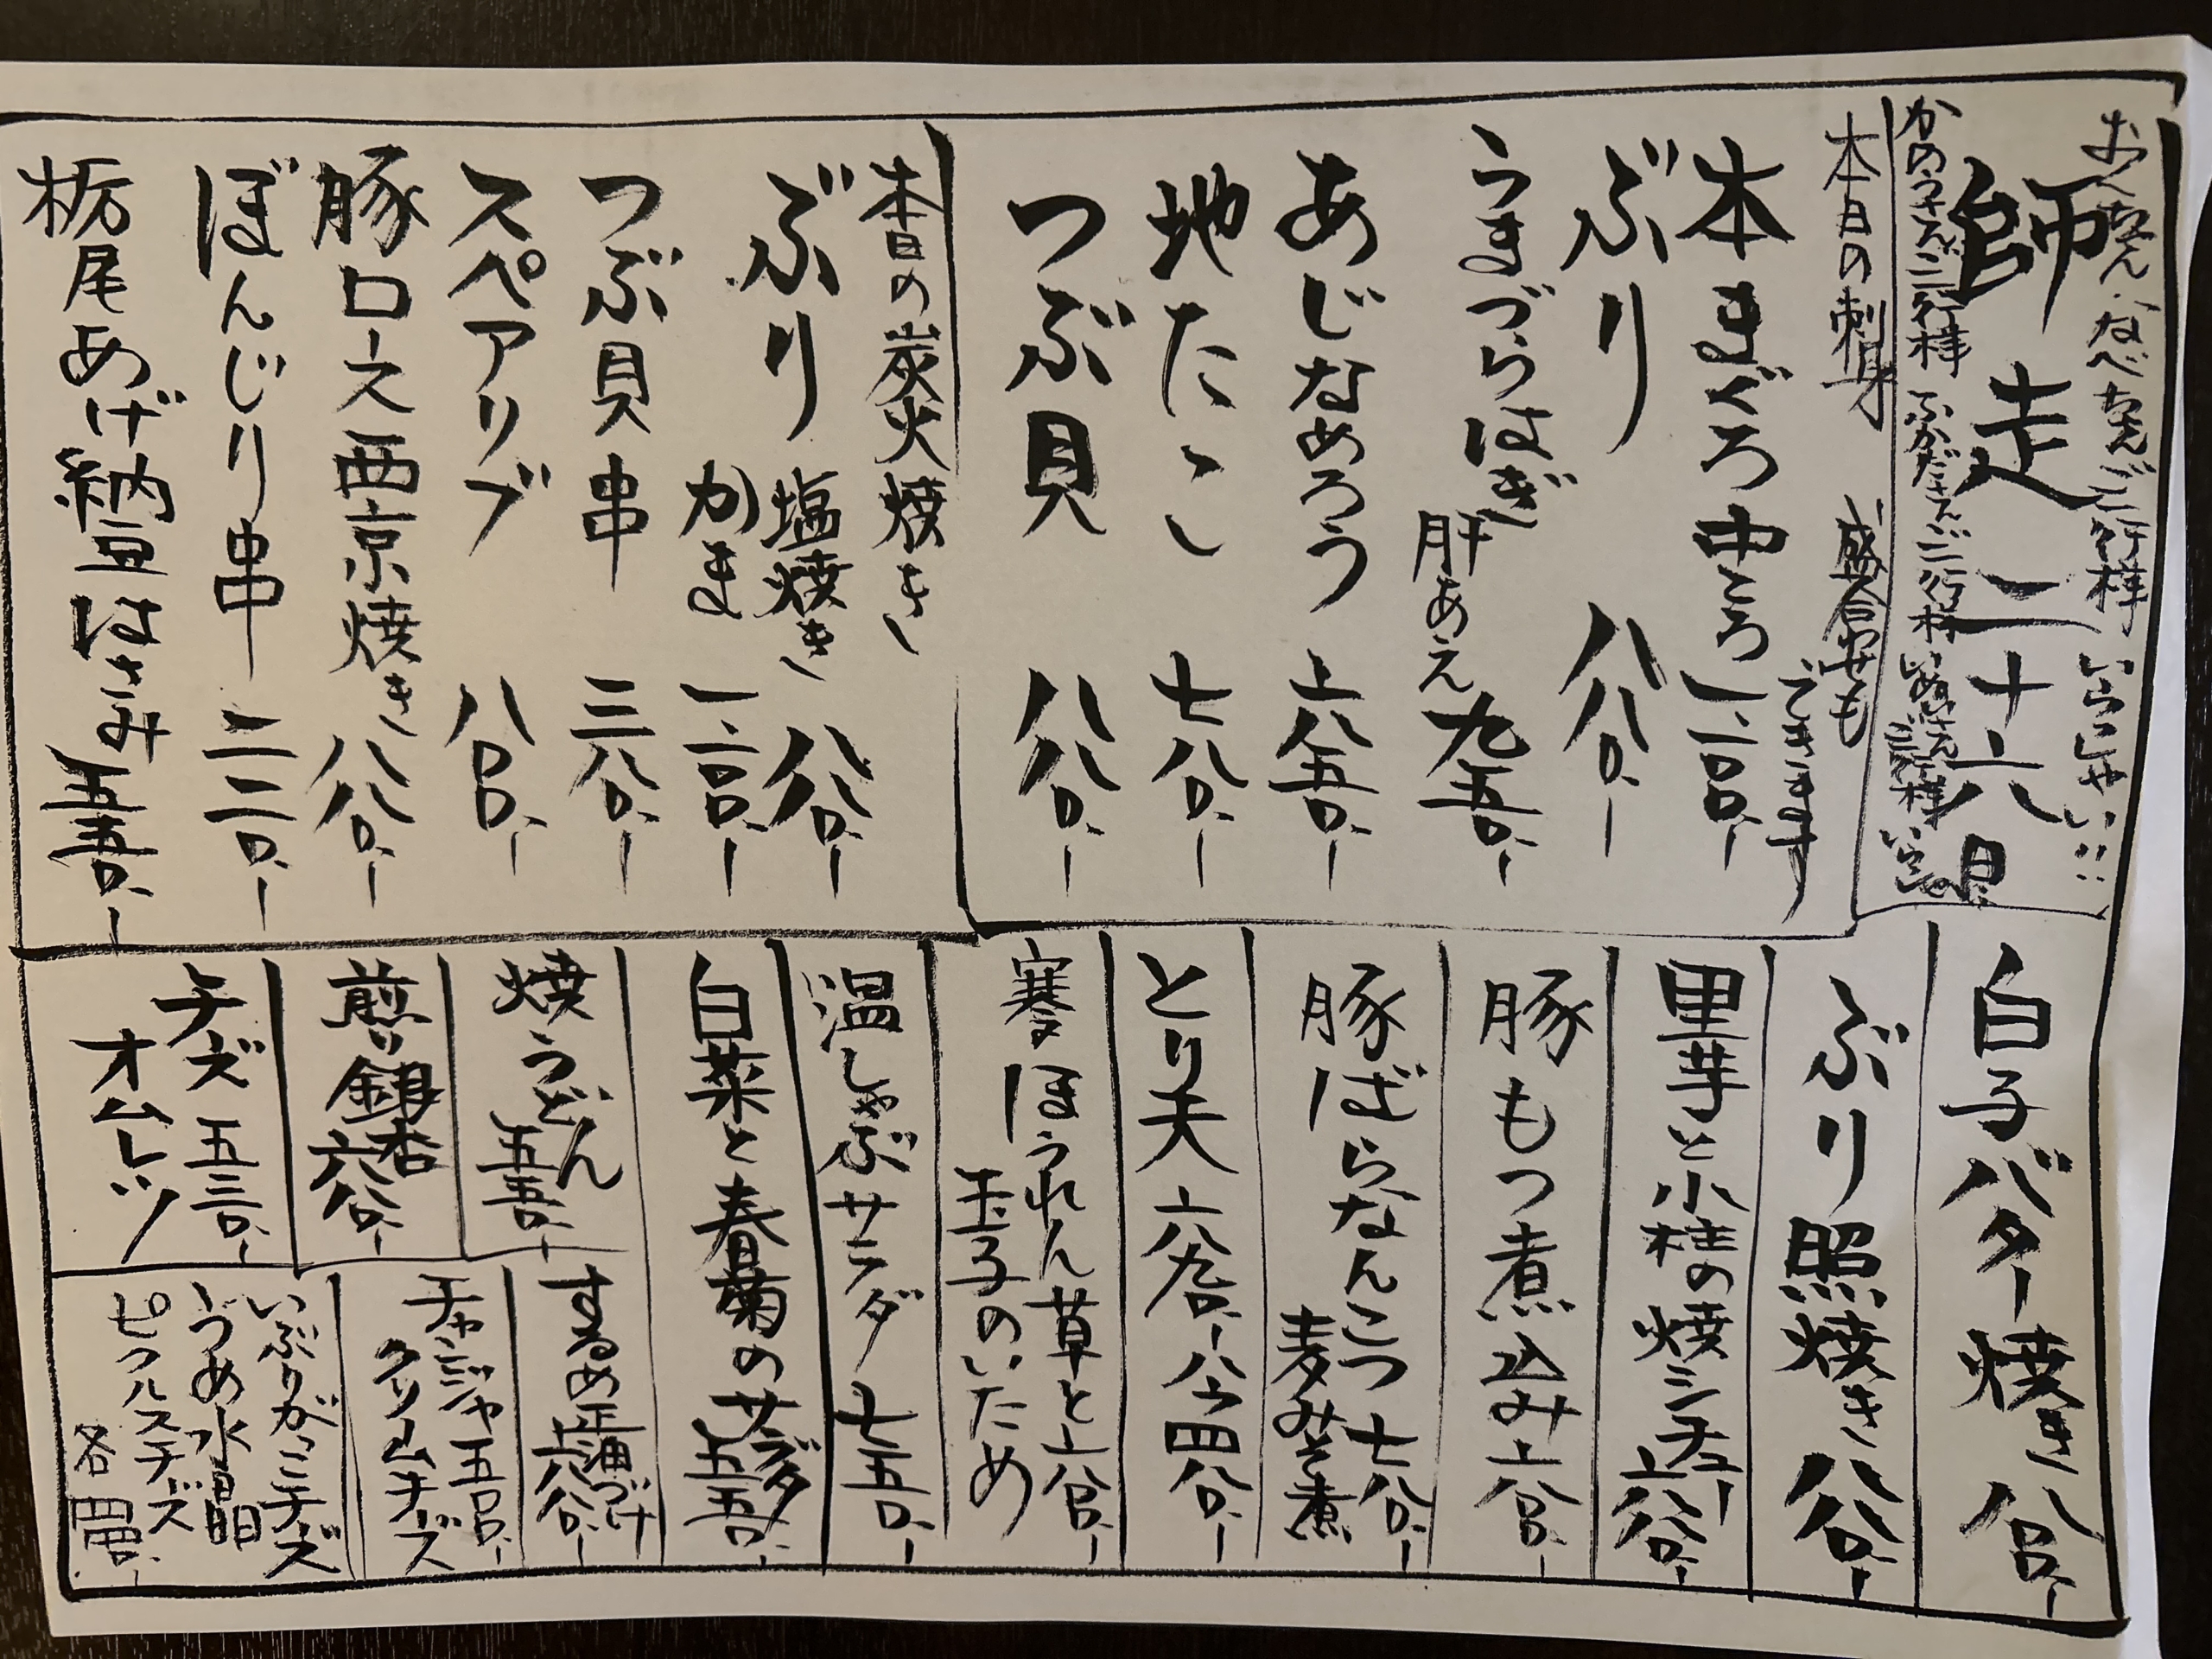 おくちゃん・なべちゃんご一行様 いらっしゃい!!
師走二十六日
かの子さんご一行様 ふかださんご一行様
本日の刺身 盛合わせもできます
本まぐろ中とろ 一、二〇〇、ー
ぶり 八八〇、ー
うまづらはぎ 肝あえ 九五〇、ー
あじなめろう 六五〇、ー
地たこ 七八〇、ー
つぶ貝 八八〇、ー
本日の炭火焼き
ぶり 塩焼き 八八〇、ー
かま 一、二〇〇、ー
つぶ貝串 三八〇、ー
スペアリブ 八〇〇、ー
豚ロース西京焼き 八八〇、ー
ぼんじり串 二二〇、ー
栃尾あげ納豆はさみ 五五〇、ー
白子バター焼き 八〇〇、ー
ぶり照焼き 八八〇、ー
里芋と小柱の焼シチュー 六八〇、ー
豚もつ煮込み 六八〇、ー
豚ばらなんこつ 七八〇、ー
麦みそ煮
とり天 六九〇、ー ハーフ四八〇、ー
寒ほうれん草と 六八〇、ー
玉子のいため
温しゃぶサラダ 七五〇、ー
白菜と春菊のサラダ 五五〇、ー
焼うどん
五五〇、ー
するめ正油づけ
六八〇、ー
煎り銀杏
六八〇、ー
チャンジャ 五八〇、ー
クリームチーズ
チーズ 五三〇、ー
オムレツ
いぶりがっこチーズ
うめ水晶
ピクルスチーズ
各 四四〇、ー